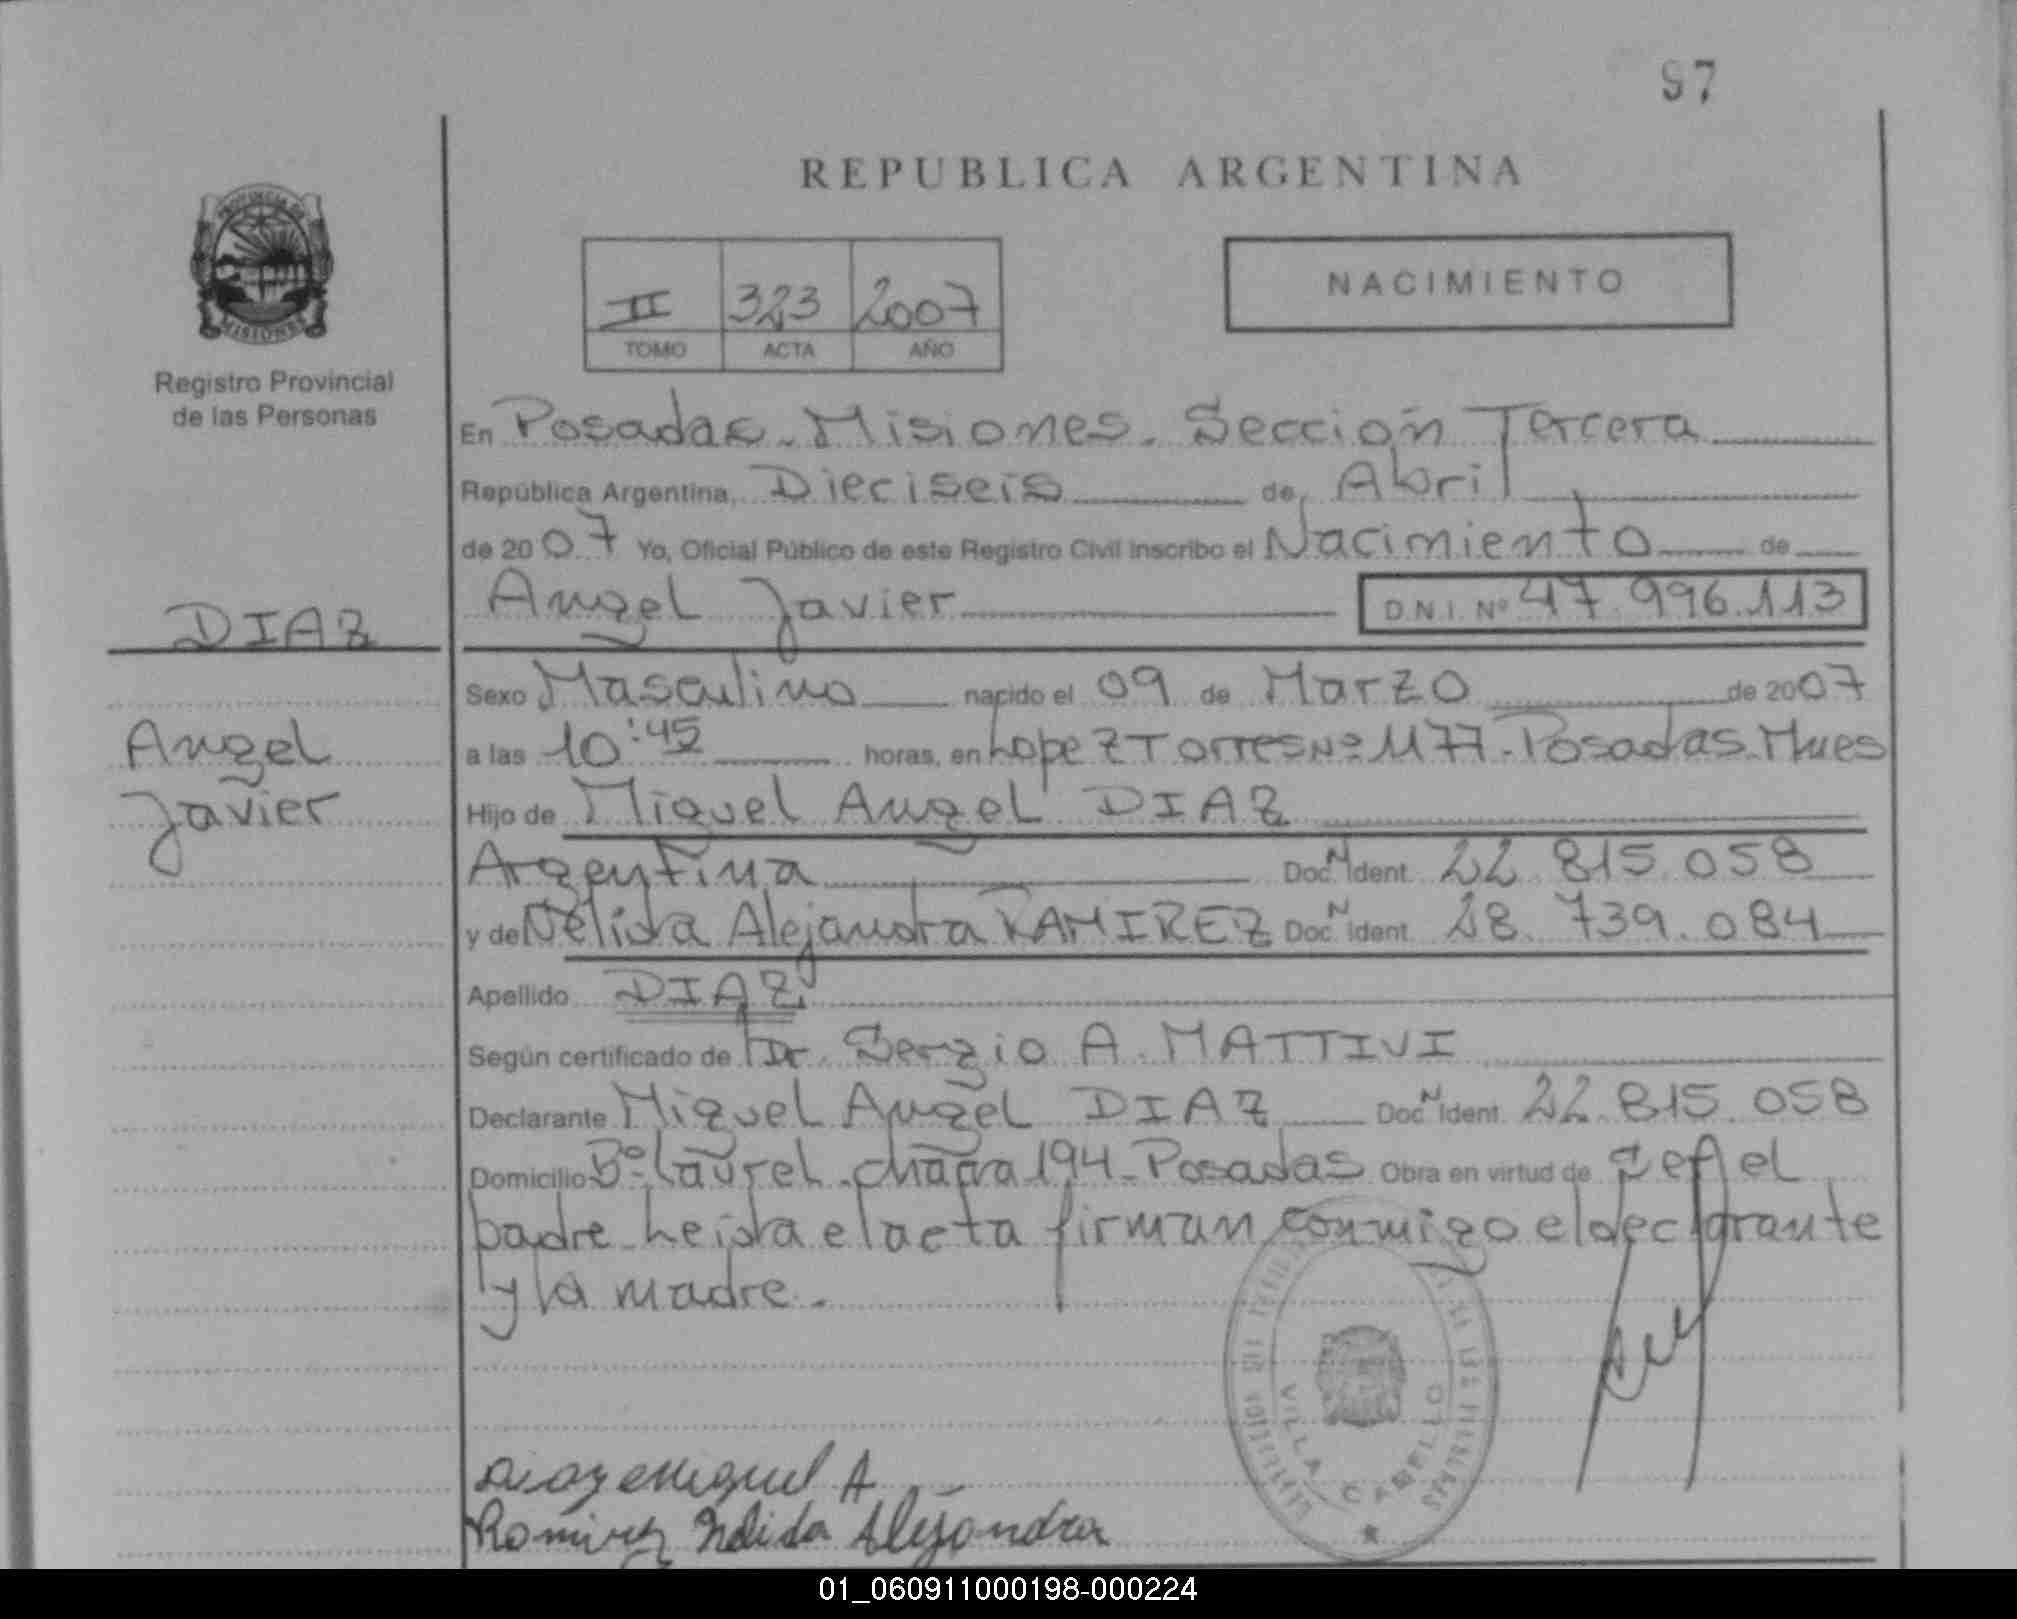 97
REPUBLICA ARGENTINA
PROVINCIA DE
MISIONES
Registro Provincial
de las Personas
II 323 2007
TOMO ACTA AÑO
NACIMIENTO
En Posadas - Misiones - Sección Tercera
República Argentina, Dieciseis de Abril
de 2007 Yo, Oficial Público de este Registro Civil inscribo el Nacimiento de
Angel Javier D.N.I. Nº 47.996.113
DIAZ
Sexo Masculino nacido el 09 de Marzo de 2007
Angel
a las 10:45 horas, en Lopez Torres Nº 1177 - Posadas - Mnes
Javier
Hijo de Miguel Angel DIAZ
Argentina Doc. N Ident. 22.815.058
y de Nélida Alejandra RAMIREZ Doc. N Ident. 28.739.084
Apellido DIAZ
Según certificado de Dr. Sergio A. MATTIVI
Declarante Miguel Angel DIAZ Doc. N Ident. 22.815.058
Domicilio Bº Laurel - chacra 194 - Posadas Obra en virtud de ser el
padre - Leida el acta firman conmigo el declarante
y la madre.
VILLA CABELLO
Diaz Miguel A
Ramirez Nelida Alejandra
01_060911000198-000224